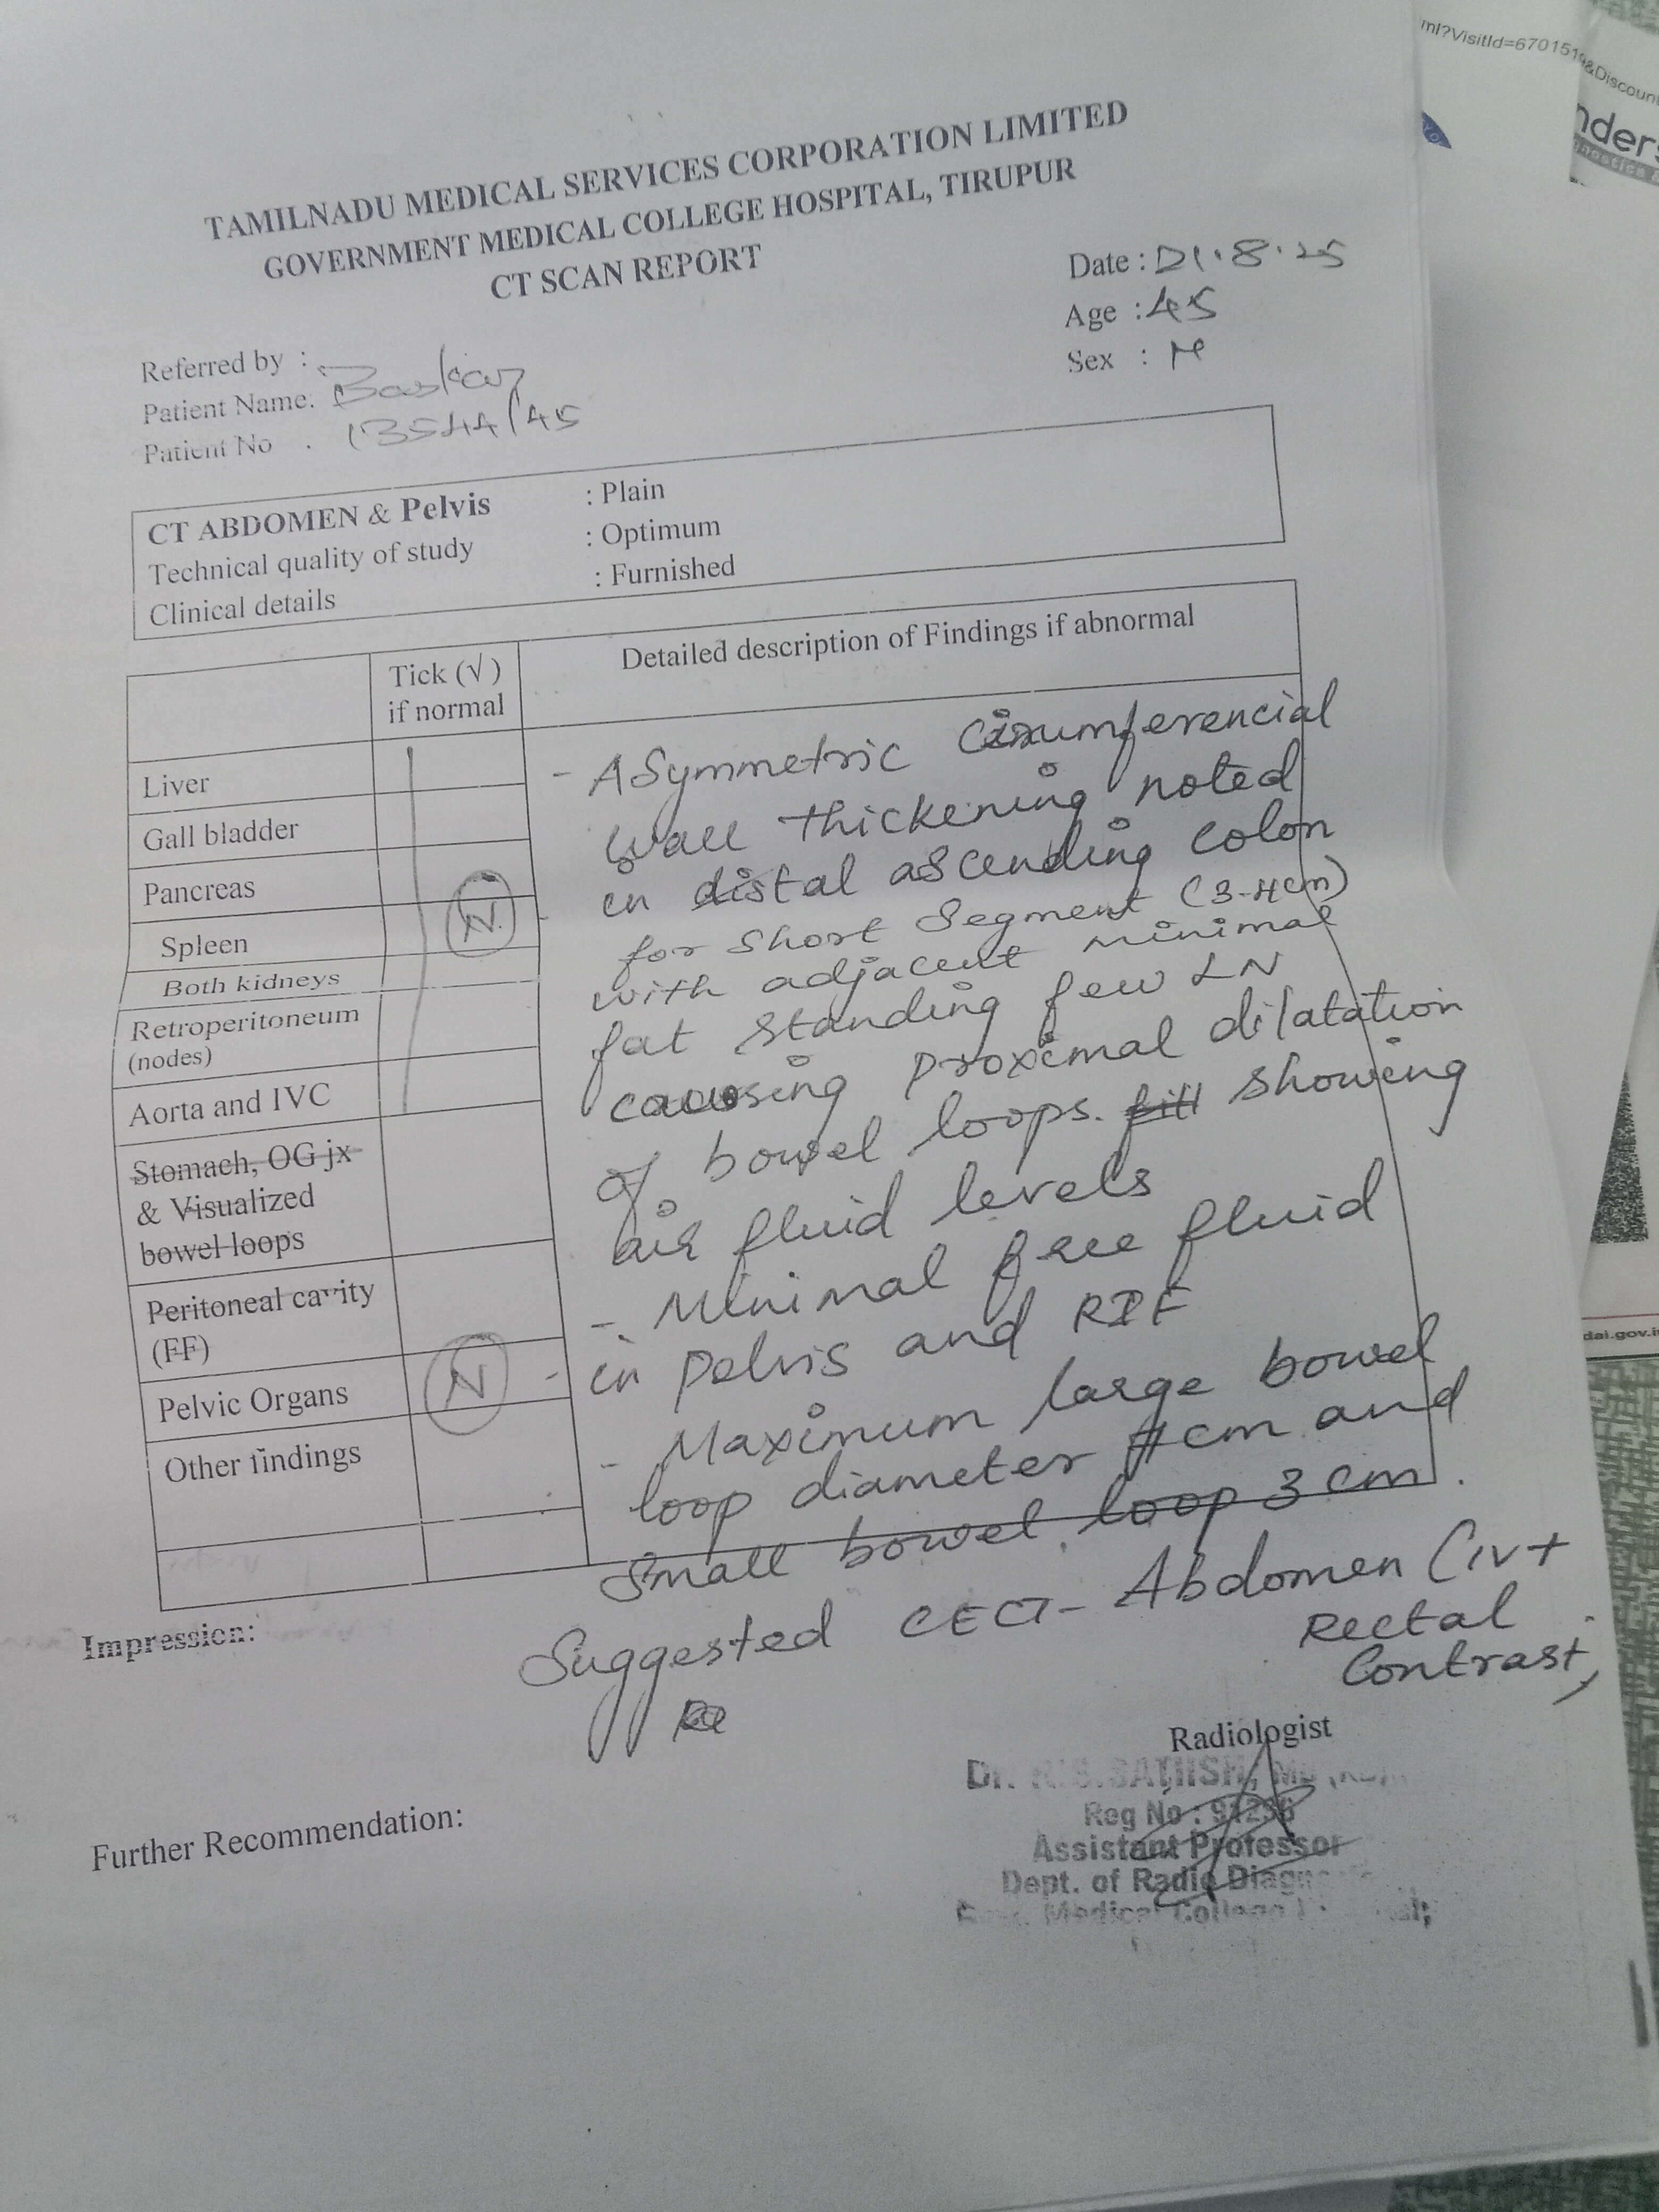 ml?VisitId=670151
&Discoun
nder
TAMILNADU MEDICAL SERVICES CORPORATION LIMITED
GOVERNMENT MEDICAL COLLEGE HOSPITAL, TIRUPUR
CT SCAN REPORT
Date : 21.8.25
Age : 45
Sex : M
Referred by :
Patient Name. Baskar
Patient No . 13544/45
CT ABDOMEN & Pelvis : Plain
Technical quality of study : Optimum
Clinical details : Furnished
Tick (√) if normal
Detailed description of Findings if abnormal
Liver
Gall bladder
Pancreas
Spleen
Both kidneys
Retroperitoneum
(nodes)
Aorta and IVC
N
Stomach, OG jx
& Visualized
bowel loops
Peritoneal cavity
(FF)
Pelvic Organs
N
Other findings
- Asymmetric Circumferencial
wall thickening noted
in distal ascending colon
for short Segment (3-4cm)
with adjacent minimal
fat standing few LN
causing proximal dilatation
of bowel loops. showing
air fluid levels
- Minimal free fluid
in Pelvis and RIF
- Maximum large bowel
loop diameter cm and
Small bowel loop 3 cm.
Impression:
Suggested CECT - Abdomen (IV+
Rectal
Contrast)
Radiologist
Dr. SATHISH, MD
Reg No :
Assistant Professor
Dept. of Radio
Medical College
Further Recommendation:
dai.gov.i